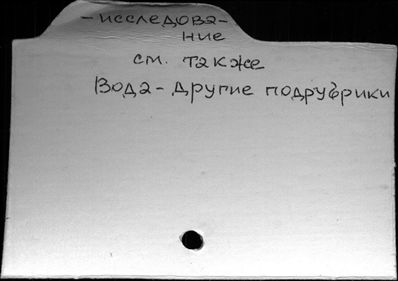 -исследова-
ние
см. также
Вода - другие подрубрики